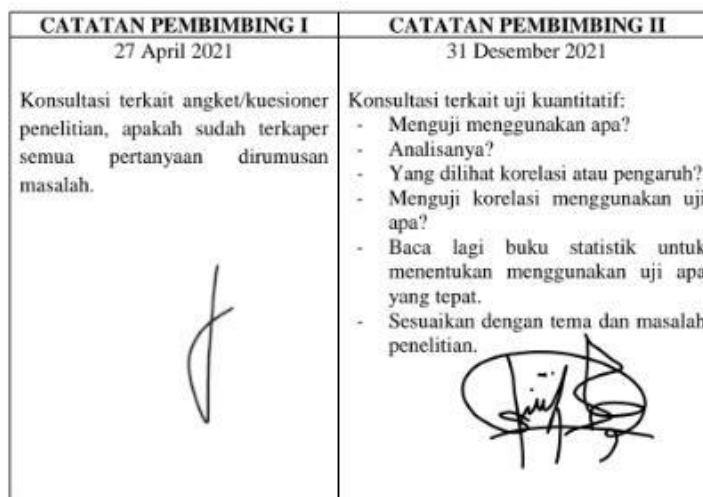 CATATAN PEMBIMBING I
27 April 2021
Konsultasi terkait angket/kuesioner
penelitian, apakah sudah terkaper
semua pertanyaan dirumusan
masalah.
CATATAN PEMBIMBING II
31 Desember 2021
Konsultasi terkait uji kuantitatif:
- Menguji menggunakan apa?
- Analisanya?
- Yang dilihat korelasi atau pengaruh?
- Menguji korelasi menggunakan uji
apa?
- Baca lagi buku statistik untuk
menentukan menggunakan uji apa
yang tepat.
- Sesuaikan dengan tema dan masalah
penelitian.